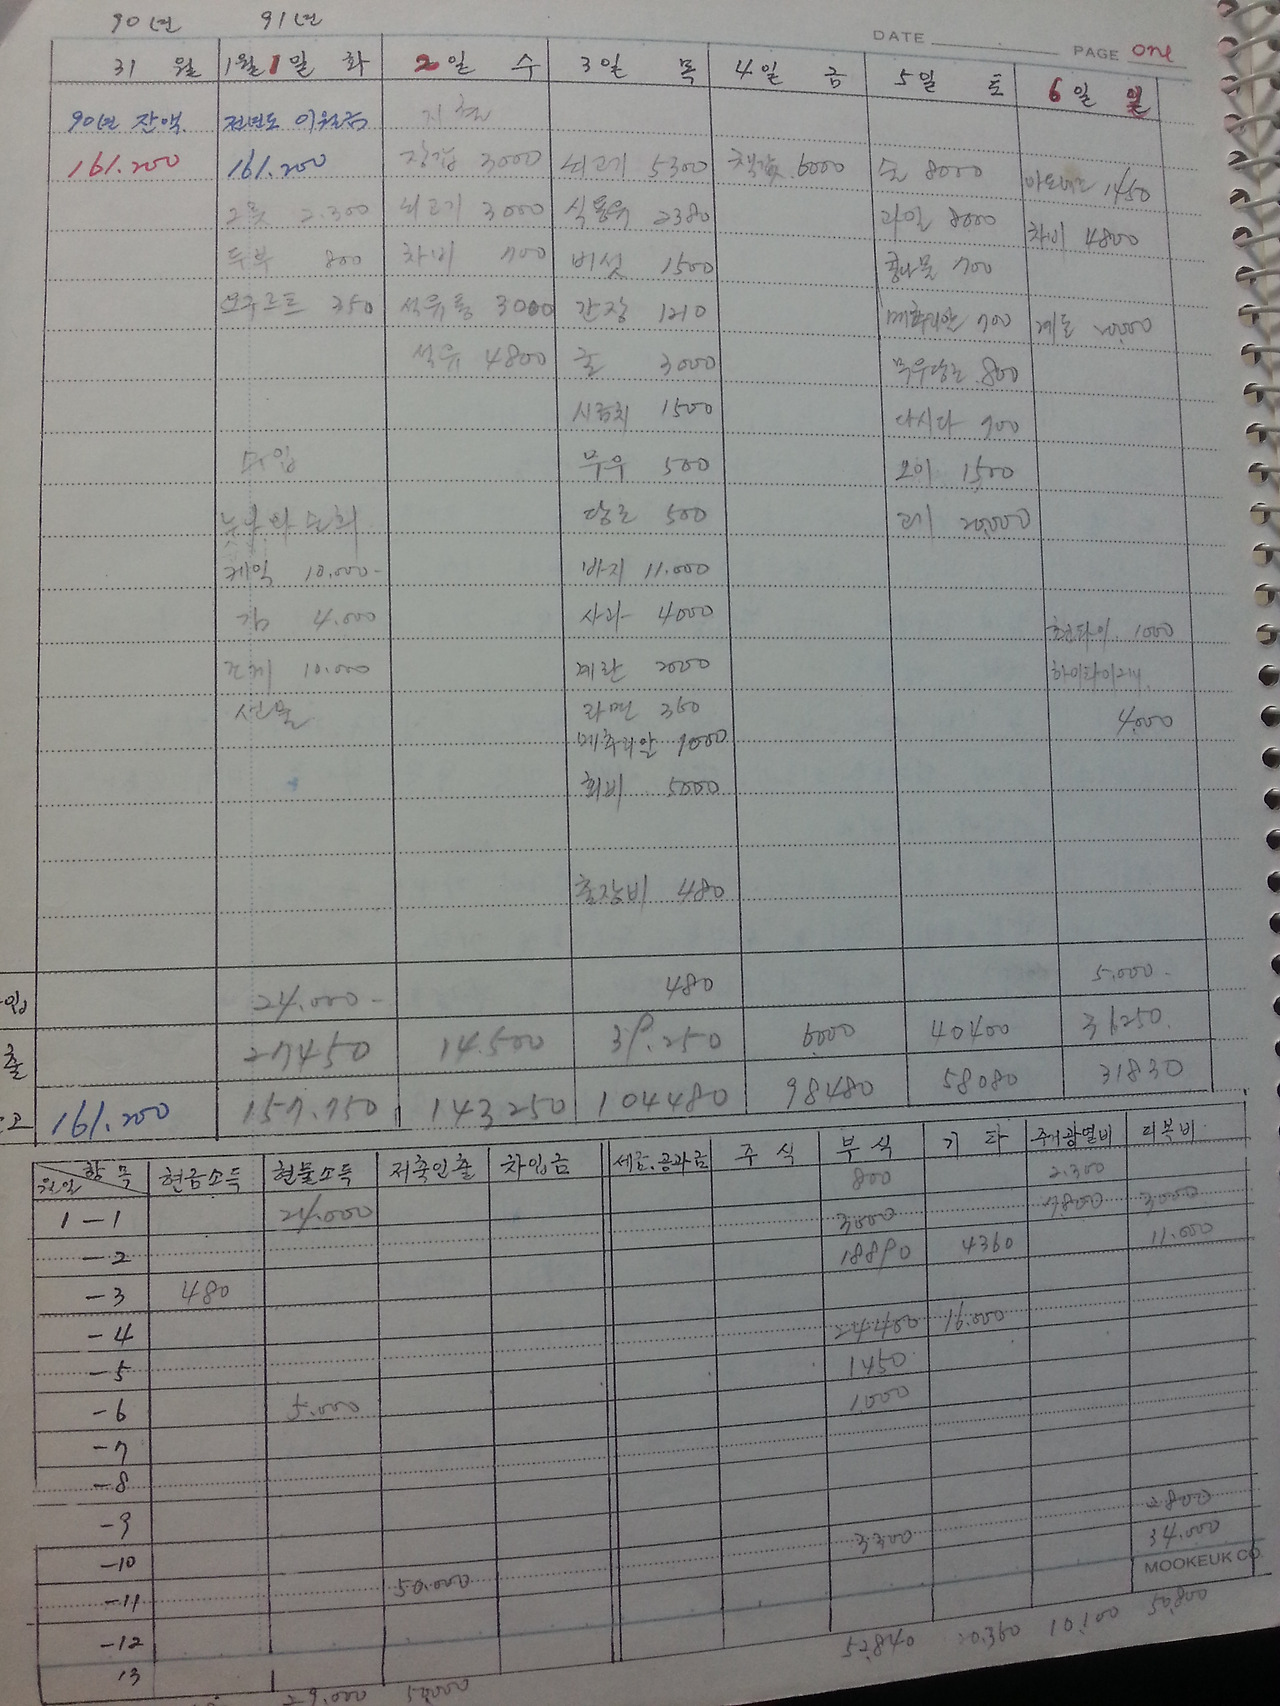 90년 91년
DATE PAGE one
31 월 1월 1일 화 2일 수 3일 목 4일 금 5일 토 6일 일
90년 잔액 전년도 이월금 지출
161.200 161.200 장갑 3000 쇠고기 5300 책값 6000 8000 1450
2.300 쇠고기 3000 식용유 2380 과일 8000 차비 4800
두부 800 차비 700 버섯 1500 콩나물 700
요구르트 350 석유통 3000 간장 1210 메추리알 700
석유 4800 귤 3000 무우당근 800
시금치 1500 다시다 900
수입 무우 500 오이 1500
당근 500 20,000
케익 10.000- 바지 11.000
김 4.000 사과 4000 1000
10.000 계란 2000
선물 라면 360 4.000
메추리알 1000
회비 5000
출장비 480
24.000- 480 5.000-
출 27450 14.500 39.250 6000 40400 36250
고 161.200 157.750 143250 104480 98480 58080 31830
월일 항목 현금소득 현물소득 저축인출 차입금 세금.공과금 주식 부식 기타 주거광열비 피복비
1-1 24.000 800 2.300
-2 3000 7800 3000
-3 480 18890 4360 11.000
-4
-5 24400 16.000
-6 5.000 1450
-7 1000
-8
-9
-10 3300 2800
-11 50.000 34.000
MOOKEUK CO.
-12
13 29.000 50000 52840 10100 50800